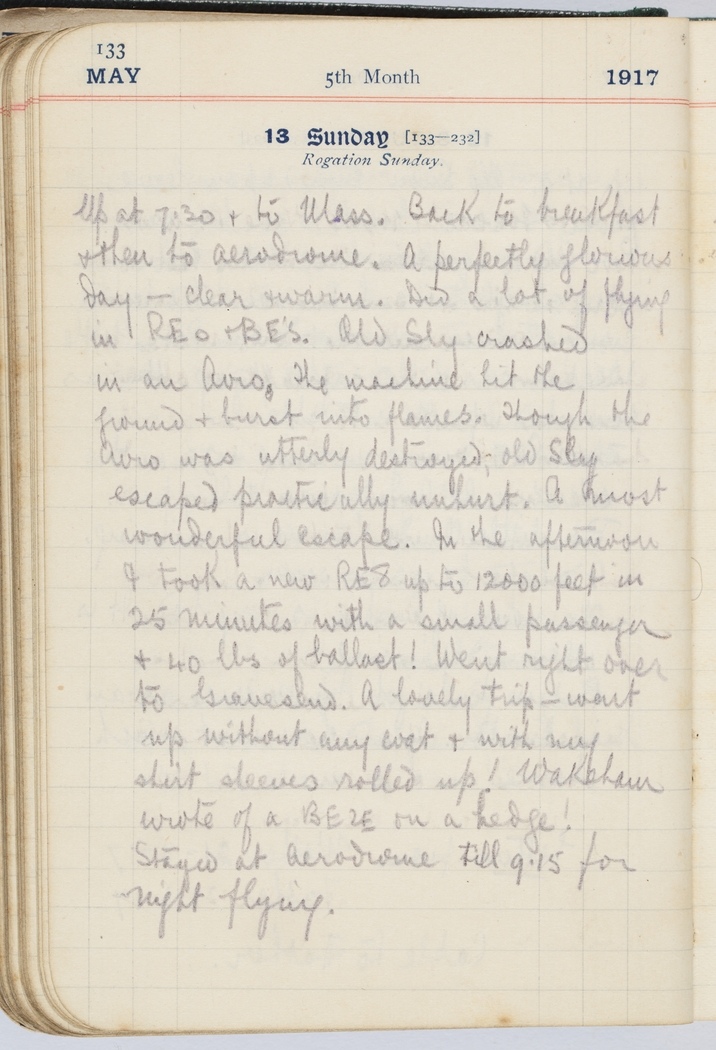 133
MAY 5th Month 1917
13 Sunday [133—232]
Rogation Sunday.
Up at 7.30 + to Mass. Back to breakfast
+ then to aerodrome. A perfectly glorious
day — clear + warm. Did a lot of flying
in RE8 + BE's. Old Sly crashed
in an Avro, the machine hit the
ground + burst into flames. Though the
Avro was utterly destroyed, old Sly
escaped practically unhurt. A most
wonderful escape. In the afternoon
I took a new RE8 up to 12000 feet in
25 minutes with a small passenger
+ 40 lbs of ballast! Went right over
to Gravesend. A lovely trip — went
up without any coat + with my
shirt sleeves rolled up! Wakeham
wrote of a BE2E on a hedge!
Stayed at Aerodrome till 9.15 for
night flying.